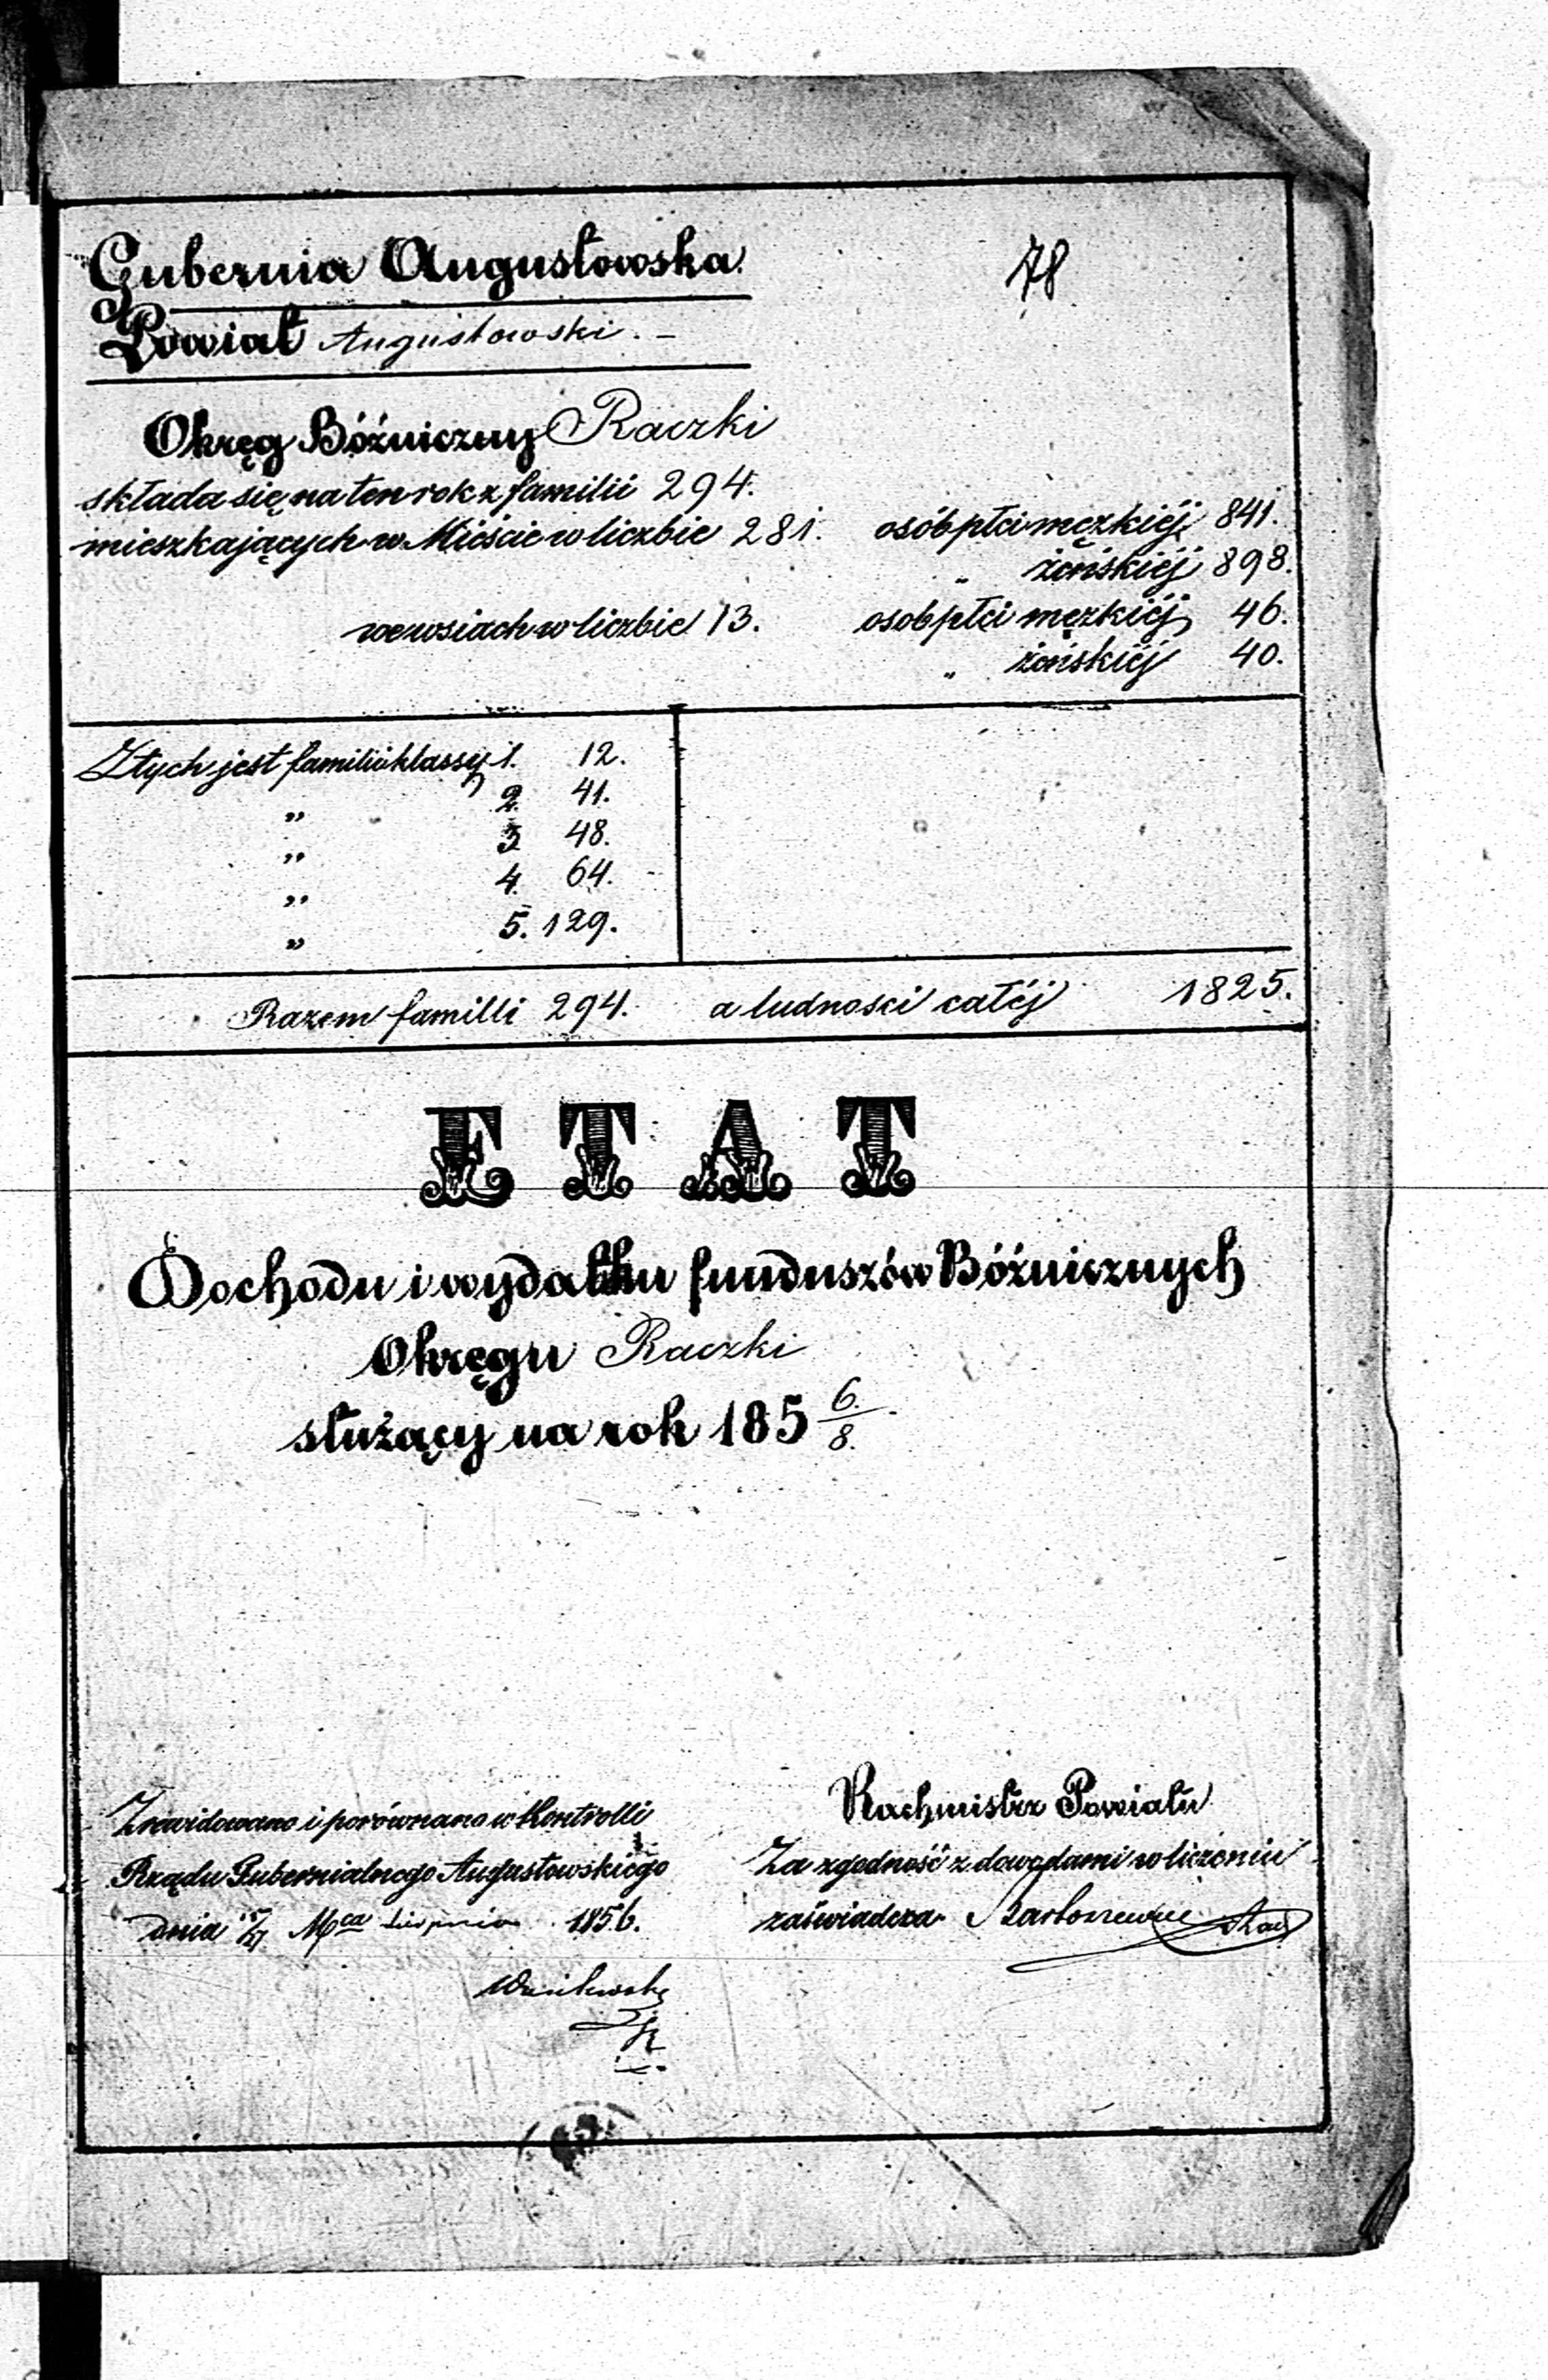 Gubernia Augustowska.
78
Powiat Augustowski. -
Okręg Bóżniczny Raczki
składa się na ten rok z familii 294.
mieszkających w Mieście w liczbie 281. osób płci męzkiéj 841.
„ żeńskiéj 898.
we wsiach w liczbie 13. osob płci męzkiéj 46.
„ żeńskiéj 40.
Z tych jest familii klassy 1. 12.
„ 2. 41.
„ 3 48.
„ 4. 64.
„ 5. 129.
Razem familli 294. a ludnosci całéj 1825.
ETAT
Dochodu i wydatku funduszów Bóżnicznych
Okręgu Raczki
służący na rok 185 6/8.
Rachmistrz Powiatu
Zrewidowano i porównano w Kontrolli
Rządu Gubernialnego Augustowskiego
Za zgodność z dowodami w liczeniu
dnia Mca Sierpnia 1856.
zaświadcza